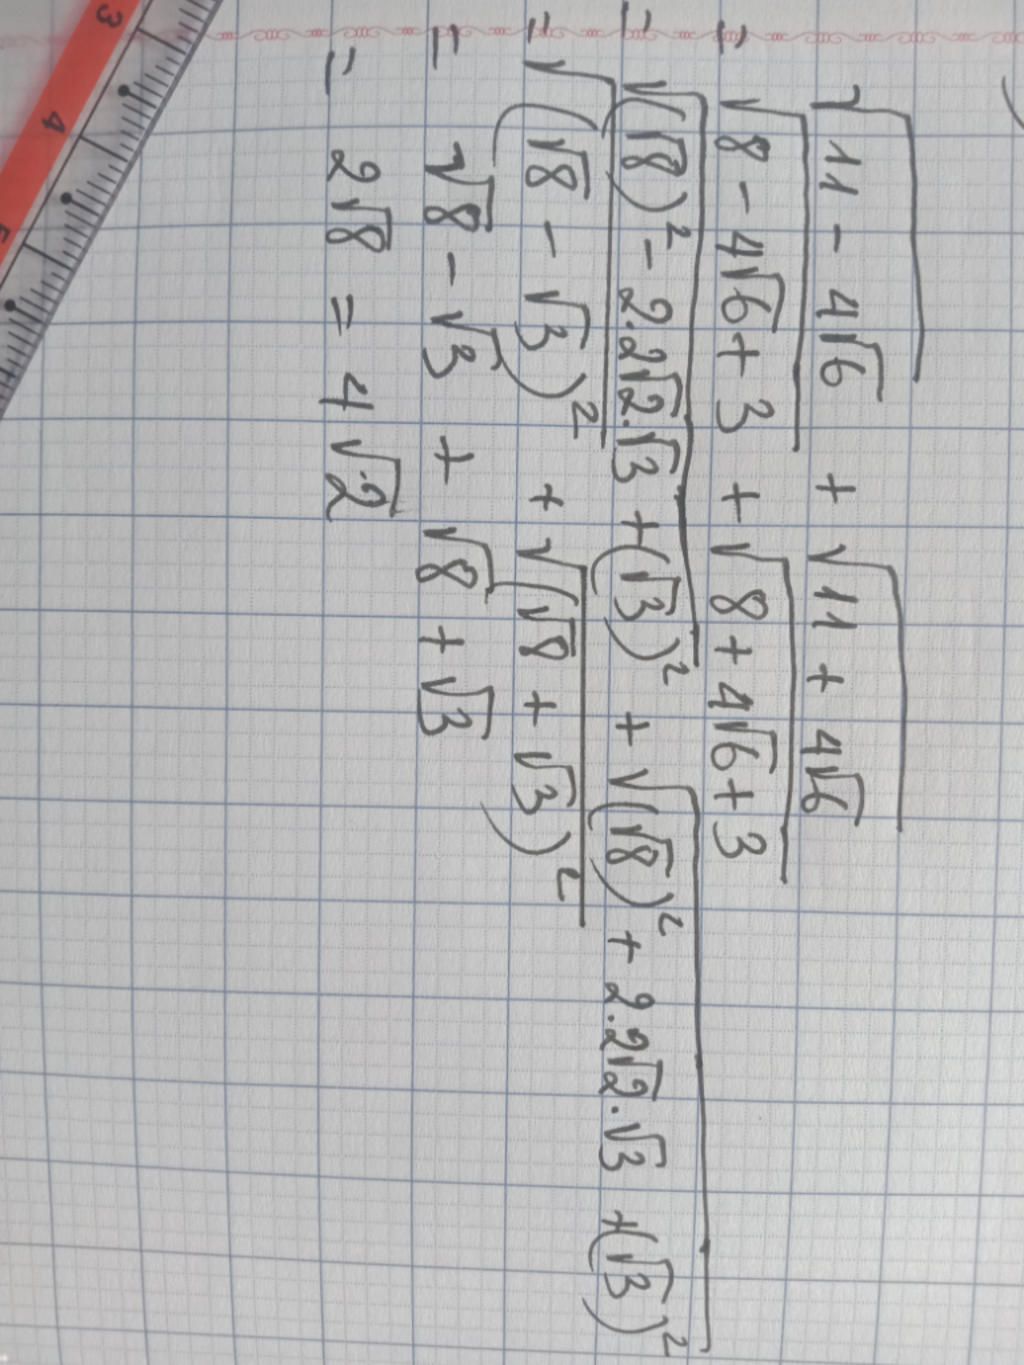 √(11 - 4√6) + √(11 + 4√6)
= √(8 - 4√6 + 3) + √(8 + 4√6 + 3)
= √((√8)² - 2.2√2.√3 + (√3)²) + √((√8)² + 2.2√2.√3 + (√3)²)
= √((√8 - √3)²) + √((√8 + √3)²)
= √8 - √3 + √8 + √3
= 2√8 = 4√2
3
4
5